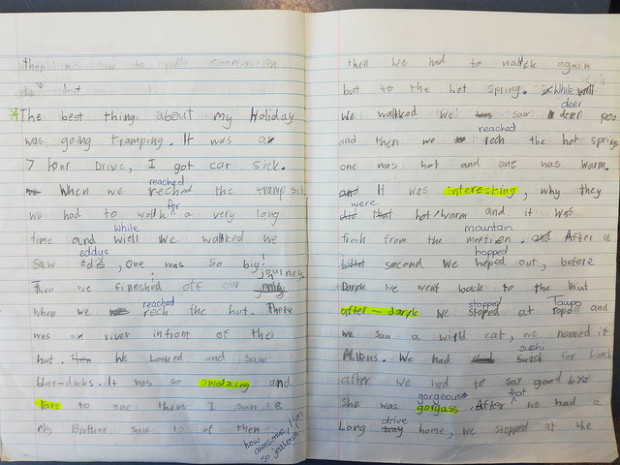 The best thing about my Holiday
was going tramping. It was a
7 hour Drive, I got car sick.
When we reached the tramp
reached
we had to walk for a very long
time and while we walked we
while
saw eddys, one was so big!
eddys
journey
Then we fineshed off our
when we reached the hut. There
reached
was a river infront of the
hut. We Looked and saw
blue-ducks. It was so amazing and
to see them I saw 8
My Brother saw 10 of them
how
awesome, I am
so jealous!
then we had to walk again
but to the hot spring. While
we walked we saw deer poo
deer
and then we rech the hot spring
reached
one was hot and one was warm.
It was interecking, why they
were
hot/warm and it was
fresh from the
mountain
After a
second we hoped out, before
hopped
we went back to the hut
after-darck we stoped at Topo and
stopped
Taupo
we saw a wild cat, we named it
Mittens. We had for lunch
sushi
after we had to say good bye
She was gorgass. After that we had a
gorgeous
that
Long drive home, we stopped at the
drive